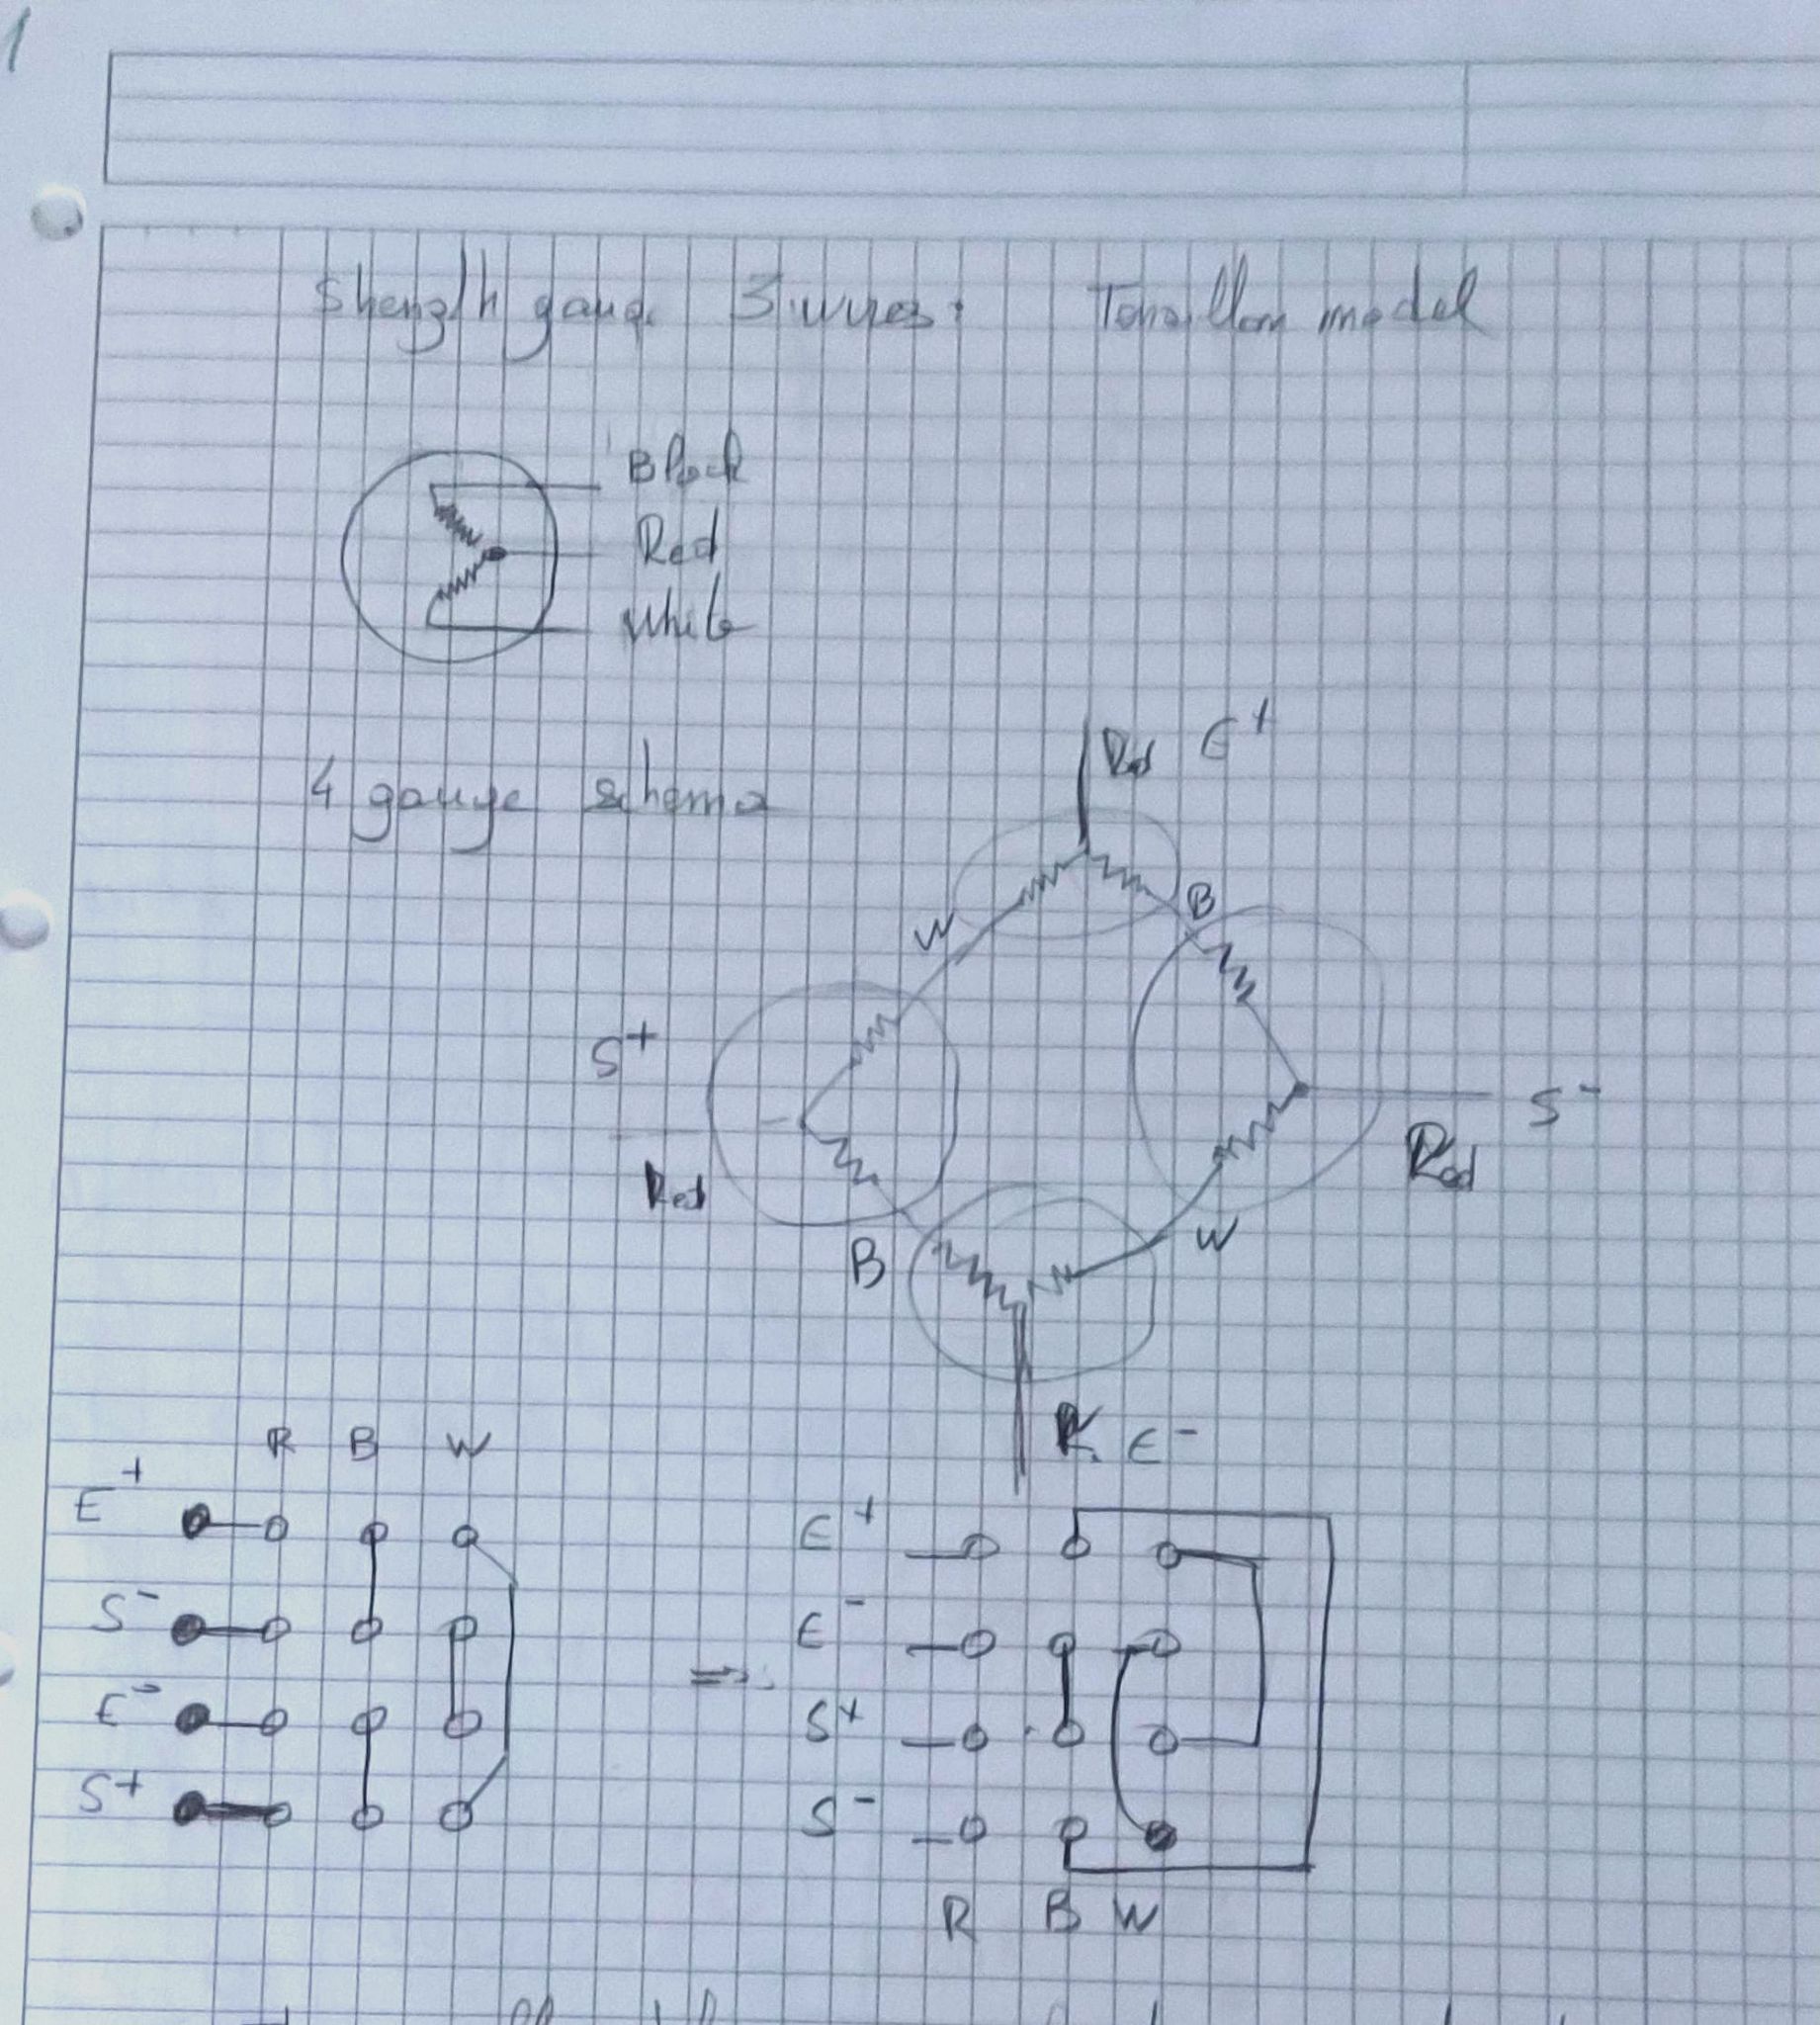 1
Strength gauge 3 wires:   model
Black
Red
White
4 gauge schema
Red E+
W B
S+
Red
S-
Red
B W
R. E-
R B W
E+
S-
E-
S+
=>
E+
E-
S+
S-
R B W